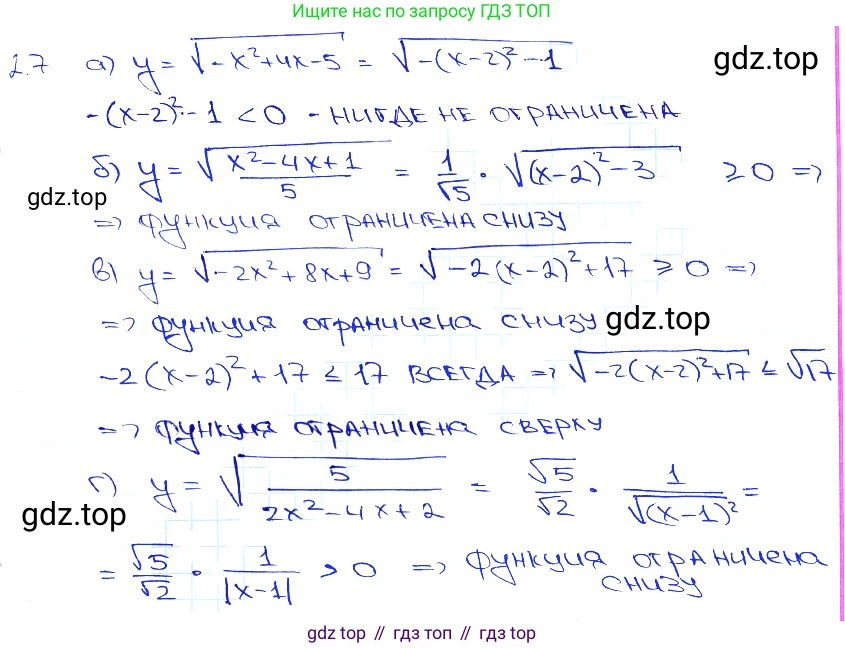 Ищите нас по запросу ГДЗ ТОП
2.7 а) y = √(-x²+4x-5) = √(-(x-2)²-1)
gdz.top
-(x-2)²-1 < 0 - НИГДЕ НЕ ОГРАНИЧЕНА
б) y = √((x²-4x+1)/5) = 1/√5 · √((x-2)²-3) ≥ 0 =>
gdz.top
=> ФУНКЦИЯ ОГРАНИЧЕНА СНИЗУ
в) y = √(-2x²+8x+9) = √(-2(x-2)²+17) ≥ 0 =>
=> ФУНКЦИЯ ОГРАНИЧЕНА СНИЗУ gdz.top
-2(x-2)²+17 ≤ 17 ВСЕГДА => √(-2(x-2)²+17) ≤ √17
=> ФУНКЦИЯ ОГРАНИЧЕНА СВЕРХУ
г) y = √(5/(2x²-4x+2)) = √5/√2 · 1/√((x-1)²) =
gdz.top
= √5/√2 · 1/|x-1| > 0 => ФУНКЦИЯ ОГРАНИЧЕНА
СНИЗУ
gdz top // гдз топ // gdz top